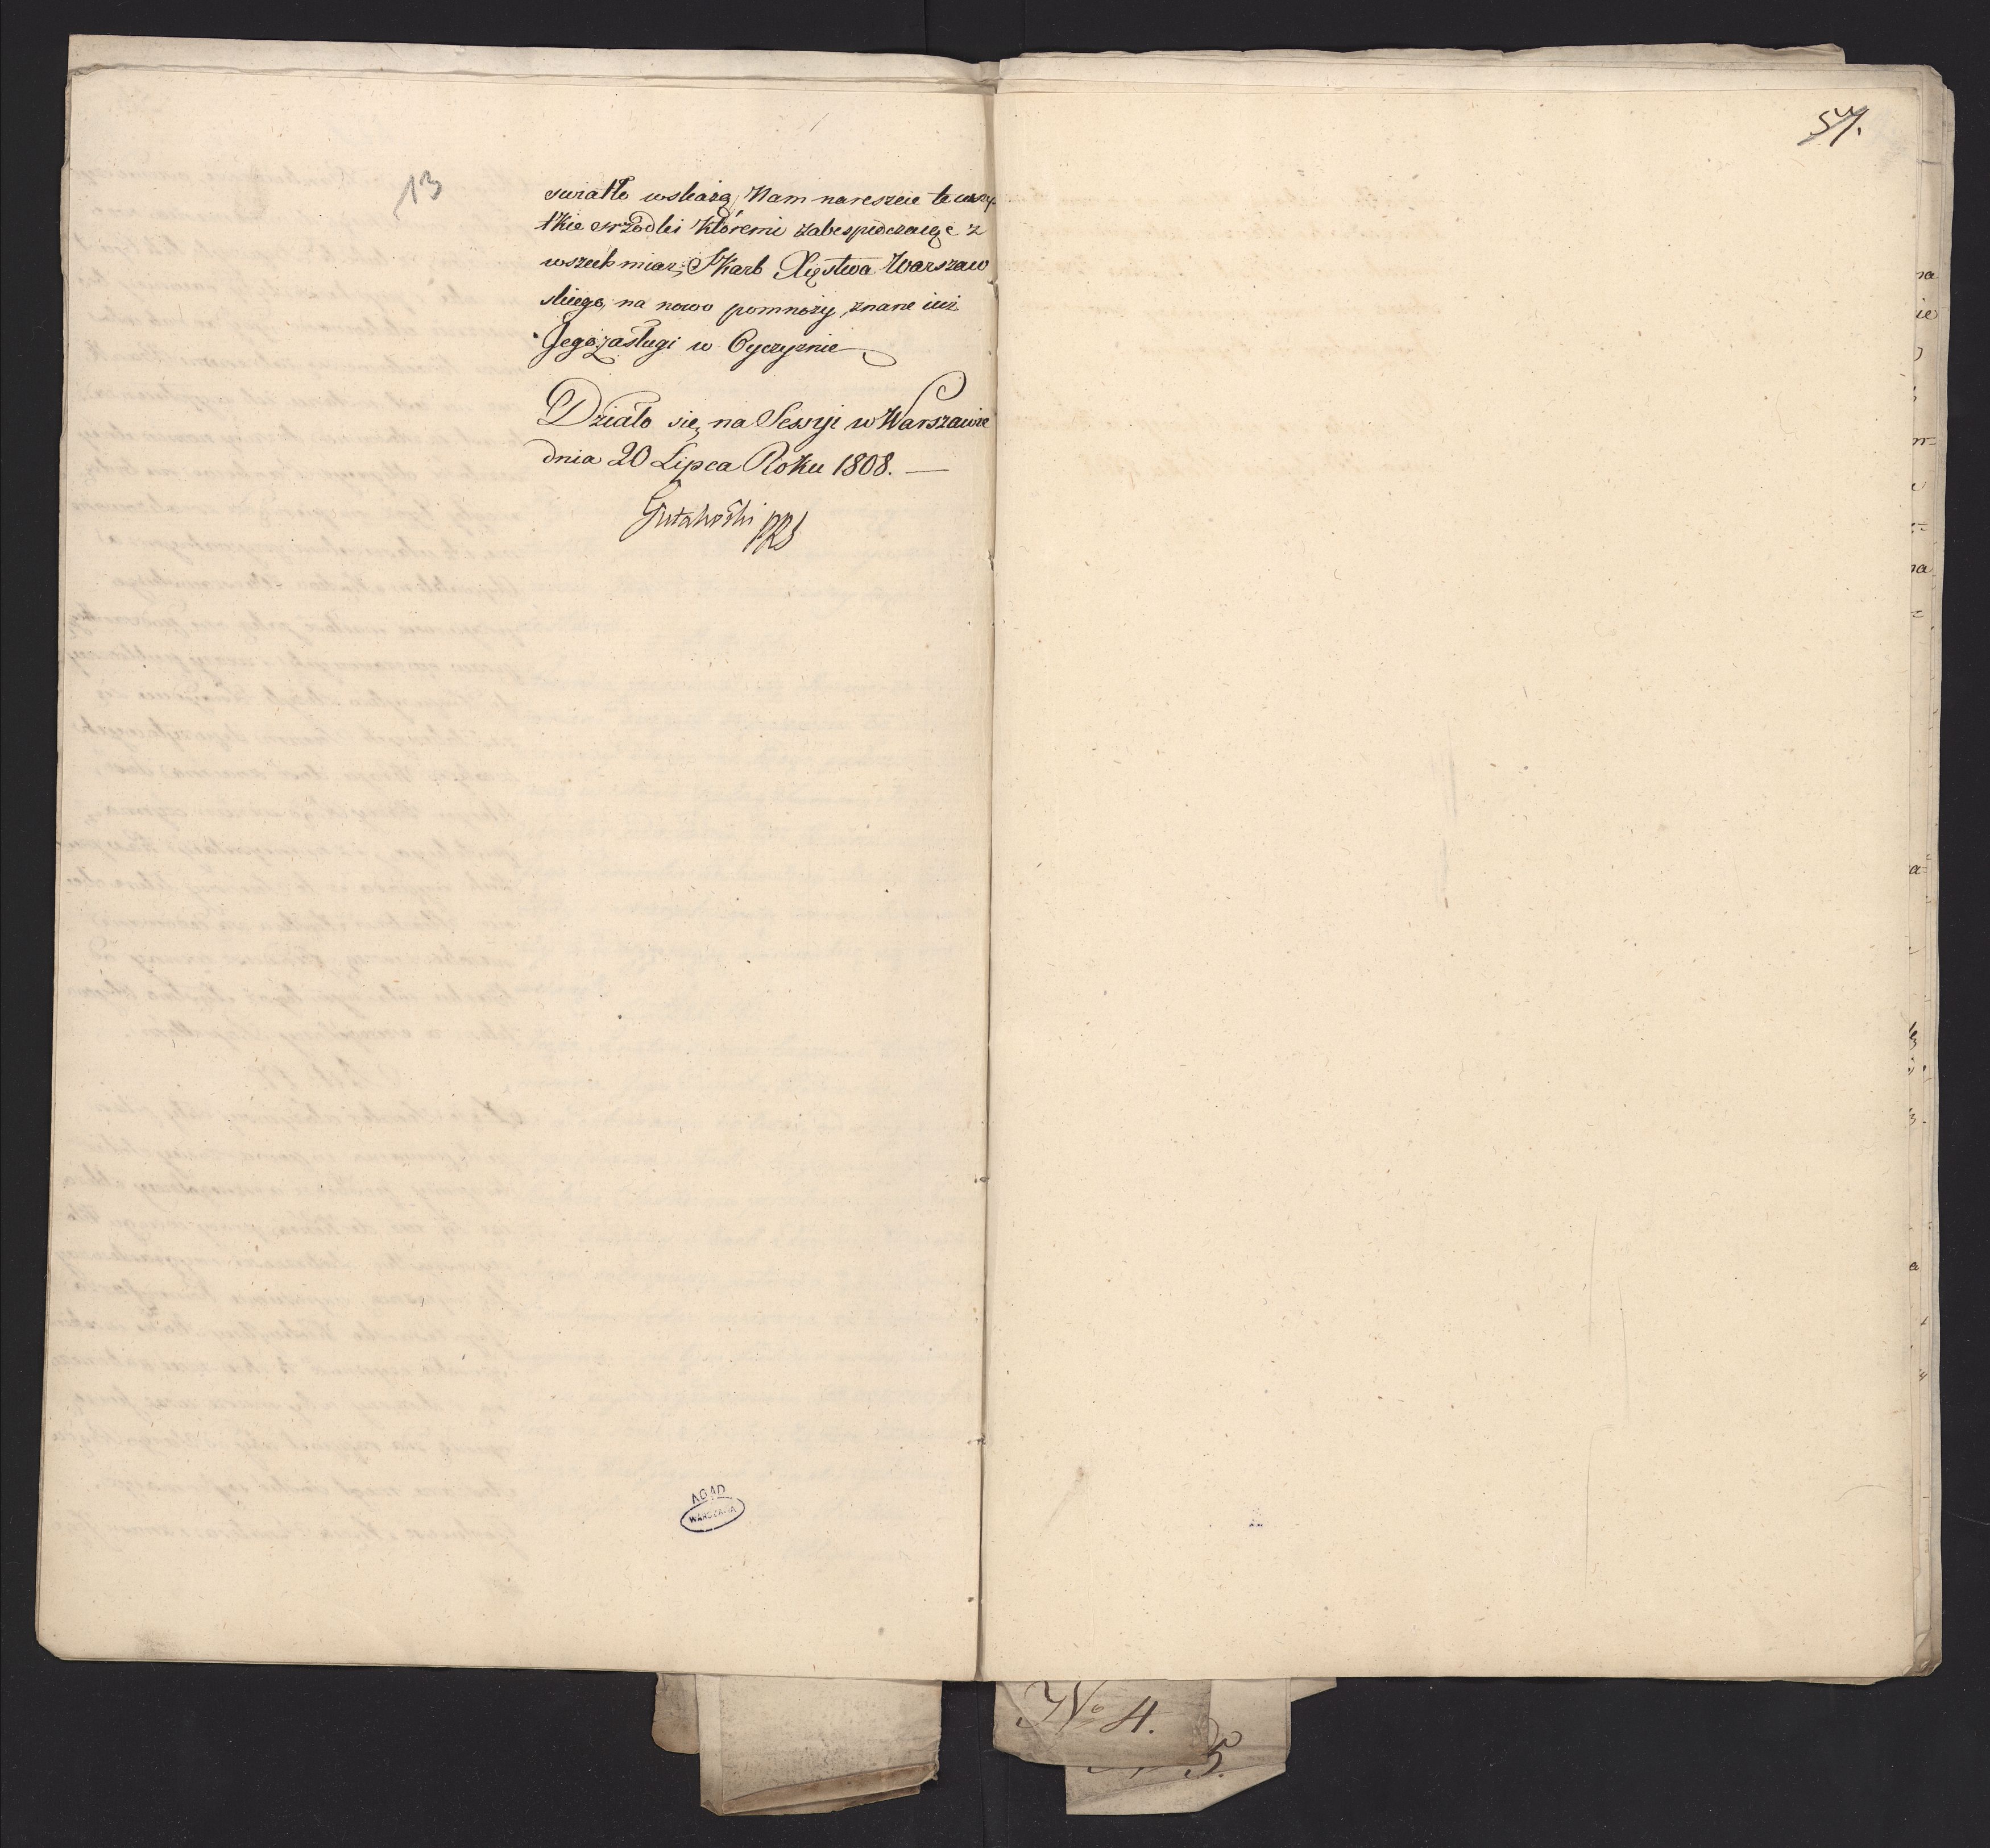 13
swiatło wskażą Nam nareszcie te wszy-
tkie srzodki któremi zabespieczaiąc z
wszech miar, Skarb Xięstwa Warszaw
skiego, na nowo pomnoży, znane iuż
Jego zasługi w Oyczyznie
Działo się na Sessyi w Warszawie
dnia 20 Lipca Roku 1808. —
Gutakowski PRS
AGAD
WARSZAWA
57.
No 4.
5.